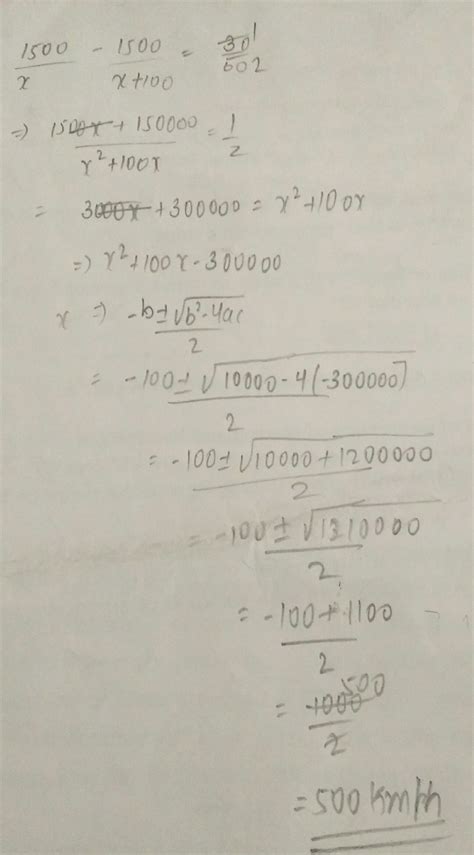 1500/x - 1500/(x+100) = 30/60 1/2
⇒ (1500x + 150000)/(x²+100x) = 1/2
= 3000x + 300000 = x²+100x
⇒ x²+100x-300000
x ⇒ (-b±√(b²-4ac))/2
= (-100±√(10000-4(-300000)))/2
= (-100±√(10000+1200000))/2
= (-100±√(1210000))/2
= (-100+1100)/2
= 1000/2 500
= 500 km/h